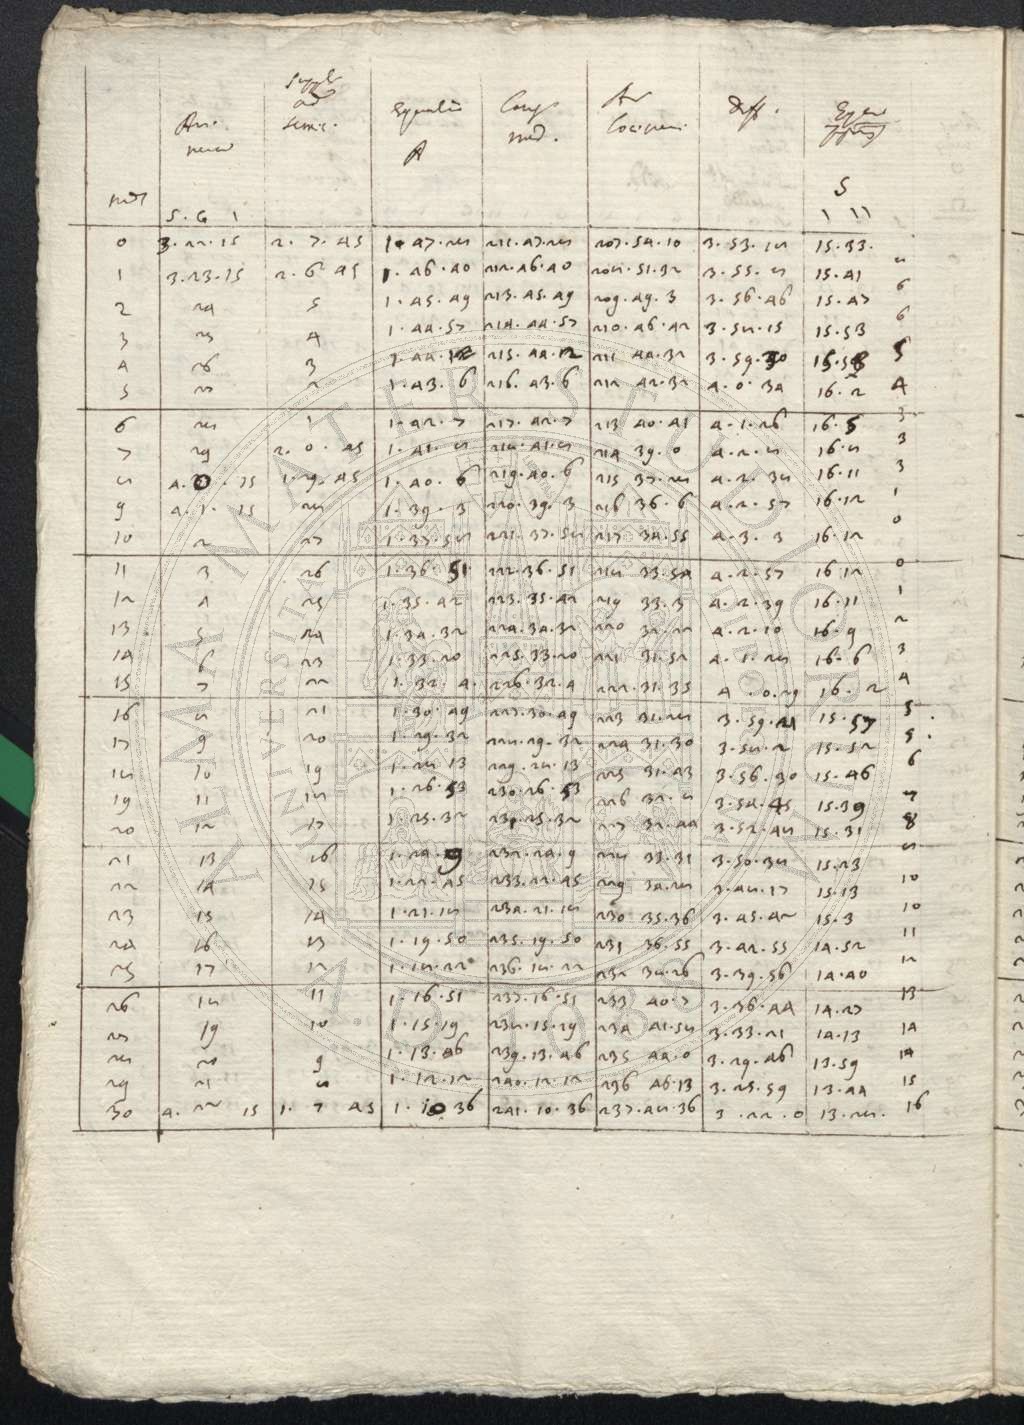 Supple
An. ad Equatio Long Ar Diff. Egeu
semic. A med. Locipeni
S
S. G 1 1 11
0 3.22.15 2.7.45 1.47.28 211.47.28 207.54.10 3.53.18 15.33.
1 3.23.15 2.6.45 1.46.40 212.46.40 208.51.32 3.55.8 15.41 8
2 24 5 1.45.49 213.45.49 209.49.3 3.56.46 15.47 6
3 25 4 1.44.57 214.44.57 210.46.42 3.58.15 15.53 6
4 26 3 1.44.2 215.44.2 211 44.32 3.59.30 15.58 5
5 27 2 1.43.6 216.43.6 212 42.32 4.0.34 16.2 4
6 28 1 1.42.7 217.42.7 213 40.41 4.1.26 16.5 3
7 29 2.0.45 1.41.8 218.41.8 214 39.0 4.2.8 16.8 3
8 4.0.15 1.29.45 1.40.6 219.40.6 215 37.28 4.2.38 16.11 3
9 4.1.15 28 1.39.3 220.39.3 216 36.6 4.2.57 16.12 1
10 2 27 1.37.58 221.37.58 217 34.55 4.3.3 16.12 0
11 3 26 1.36.51 222.36.51 218 33.54 4.2.57 16 12 0
12 4 25 1.35.42 223.35.42 219 33.3 4.2.39 16.11 1
13 5 24 1.34.32 224.34.32 220 32.22 4.2.10 16.9 2
14 6 23 1.33.20 225.33.20 221 31.52 4.1.28 16.6 3
15 7 22 1.32.4 226.32.4 222.31.35 4.0.29 16.2 4
16 8 21 1.30.49 227.30.49 223 31.28 3.59.21 15.57 5
17 9 20 1.29.32 228.29.32 224 31.30 3.58.2 15.52 5
18 10 19 1.28.13 229.28.13 225 31.43 3.56.30 15.46 6
19 11 18 1.26.53 230.26.53 226 32.8 3.54.45 15.39 7
20 12 17 1.25.32 231.25.32 227 32.44 3.52.48 15.31 8
21 13 16 1.24.9 232.24.9 228 33.31 3.50.38 15.23 8
22 14 15 1.22.45 233.22.45 229 34.28 3.48.17 15.13 10
23 15 14 1.21.18 234.21.18 230 35.36 3.45.42 15.3 10
24 16 13 1.19.50 235.19.50 231 36.55 3.42.55 14.52 11
25 17 12 1.18.22 236.18.22 232 38.26 3.39.56 14.40 12
26 18 11 1.16.51 237.16.51 233 40.7 3.36.44 14.27 13
27 19 10 1.15.19 238.15.19 234 41.58 3.33.21 14.13 14
28 20 9 1.13.46 239.13.46 235 44.0 3.29.46 13.59 14
29 21 8 1.12.12 240.12.12 236 46.13 3.25.59 13.44 15
30 4.22 15 1.7 45 1.10 36 241.10.36 237.48.36 3.22.0 13.28. 16
ALMA MATER STUDIORUM
UNIVERSITA
A.D. 1088